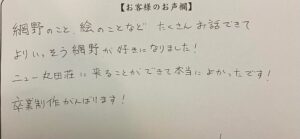 【お客様のお声欄】
網野のこと、絵のことなど たくさんお話できて
よりいっそう網野が好きになりました！
ニュー丸田荘に来ることができて本当によかったです！
卒業制作がんばります！